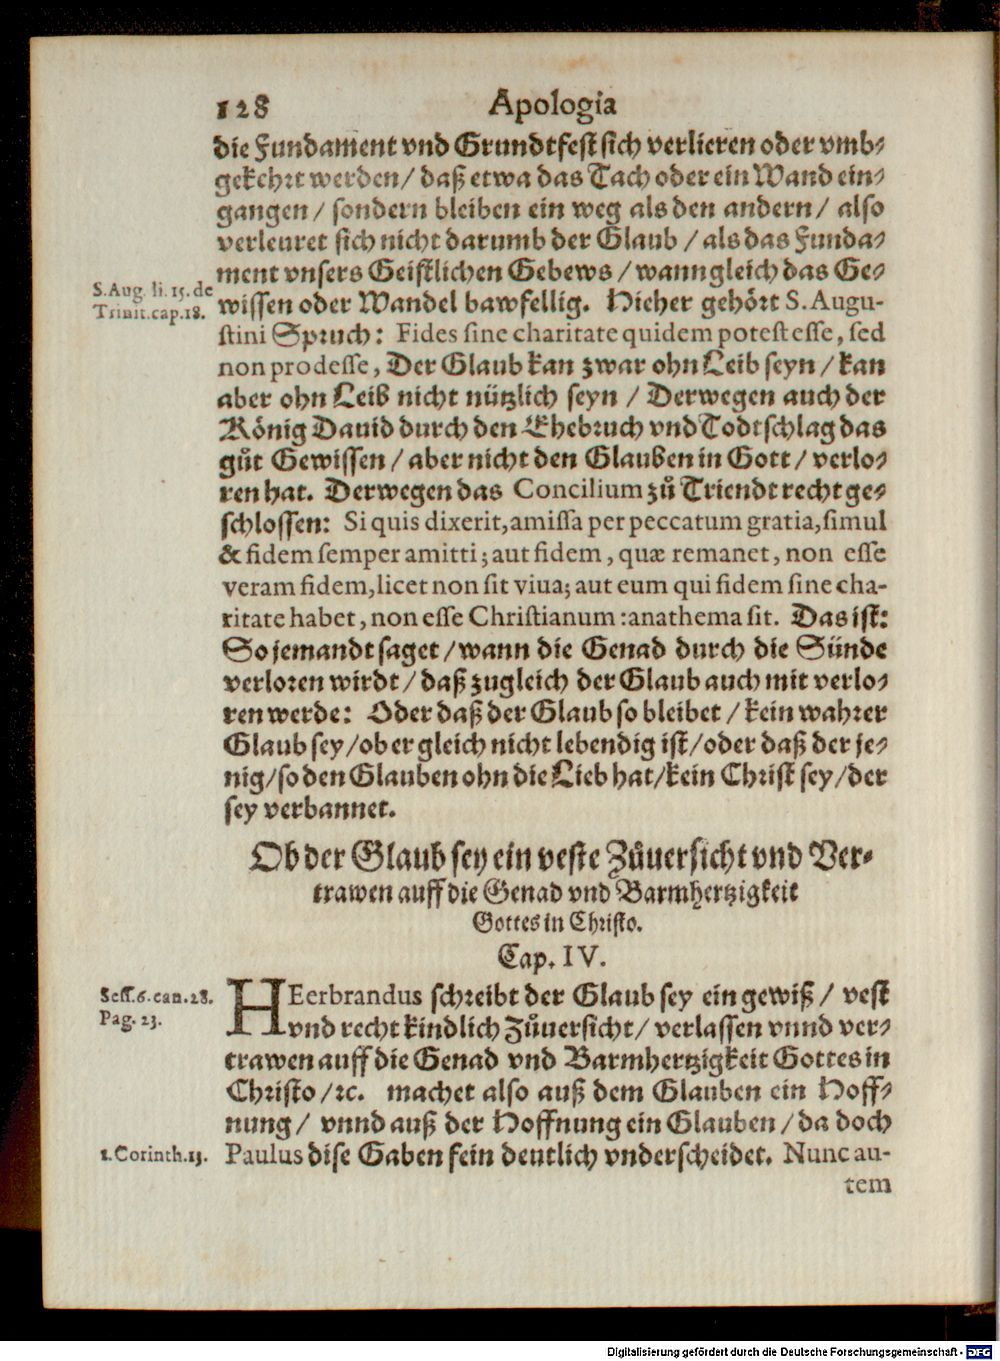 128 Apologia
die Fundament vnd Grundtfest sich verlieren oder vmb-
gekehrt werden / daß etwa das Tach oder ein Wand ein-
gangen / sondern bleiben ein weg als den andern / also
verleuret sich nicht darumb der Glaub / als das Funda-
ment vnsers Geistlichen Gebews / wann gleich das Ge-
S. Aug. li. 15. de
Trinit. cap. 18.
wissen oder Wandel bawfellig. Hieher gehört S. Augu-
stini Spruch: Fides sine charitate quidem potest esse, sed
non prodesse, Der Glaub kan zwar ohn Leib seyn / kan
aber ohn Leib nicht nützlich seyn / Derwegen auch der
König Dauid durch den Ehebruch vnd Todtschlag das
gůt Gewissen / aber nicht den Glauben in Gott / verlo-
ren hat. Derwegen das Concilium zů Triendt recht ge-
schlossen: Si quis dixerit, amissa per peccatum gratia, simul
& fidem semper amitti; aut fidem, quæ remanet, non esse
veram fidem, licet non sit viua; aut eum qui fidem sine cha-
ritate habet, non esse Christianum: anathema sit. Das ist:
So jemandt saget / wann die Genad durch die Sünde
verloren wirdt / daß zugleich der Glaub auch mit verlo-
ren werde: Oder daß der Glaub so bleibet / kein wahrer
Glaub sey / ob er gleich nicht lebendig ist / oder daß der je-
nig / so den Glauben ohn die Lieb hat / kein Christ sey / der
sey verbannet.
Ob der Glaub sey ein veste Zůuersicht vnd Ver-
trawen auff die Genad vnd Barmhertzigkeit
Gottes in Christo.
Cap. IV.
Sess. 6. can. 28.
Pag. 23.
HEerbrandus schreibt der Glaub sey ein gewiß / vest
vnd recht kindlich Zůuersicht / verlassen vnnd ver-
trawen auff die Genad vnd Barmhertzigkeit Gottes in
Christo / ꝛc. machet also auß dem Glauben ein Hoff-
nung / vnnd auß der Hoffnung ein Glauben / da doch
1. Corinth. 13.
Paulus dise Gaben fein deutlich vnderscheidet. Nunc au-
tem
Digitalisierung gefördert durch die Deutsche Forschungsgemeinschaft - DFG